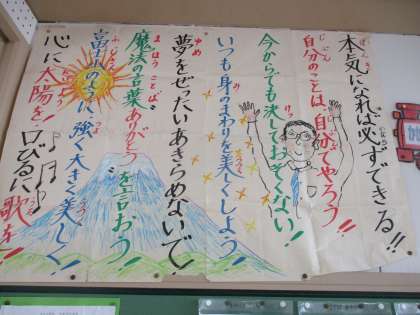 本気になれば必ずできる!!
自分のことは、自分でやろう!!
今からでも決しておそくない!!
いつも身のまわりを美しくしよう!
夢をぜったいあきらめないで!
魔法の言葉“ありがとう”を言おう!
富士山のように強く大きく美しく!
心に太陽を!口びるに歌を!!